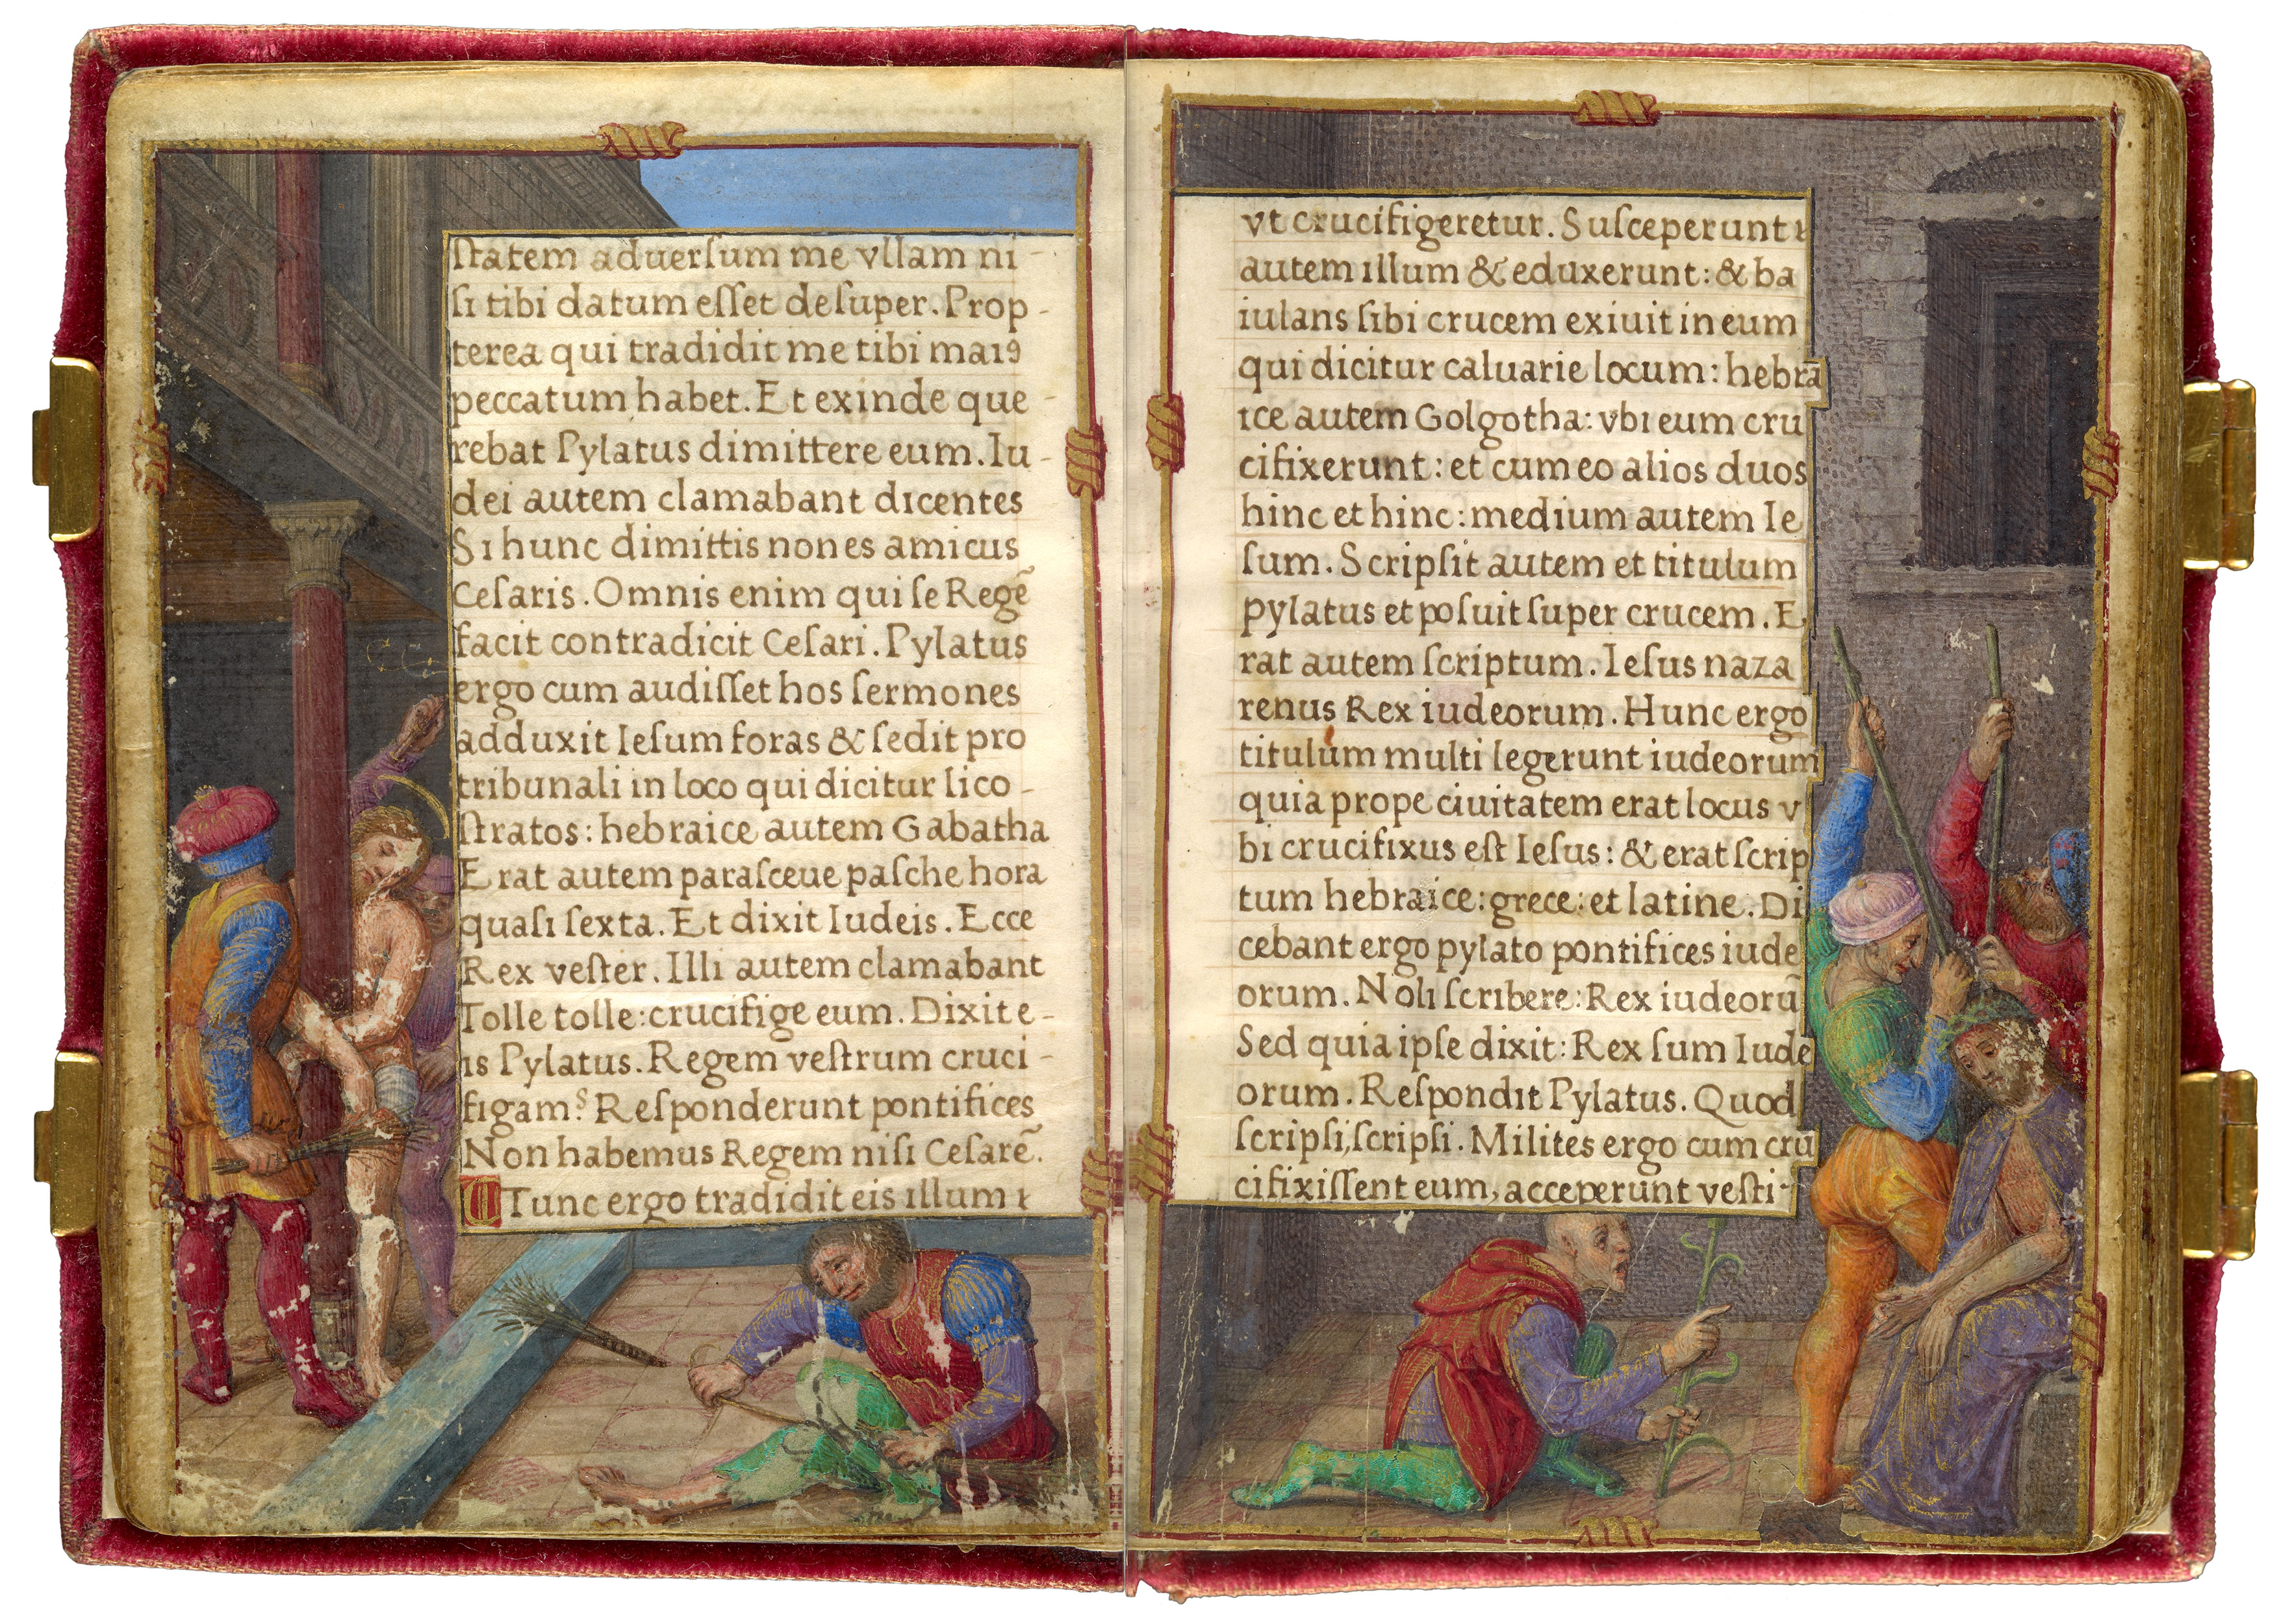 ſtatem aduerſum me vllam ni-
ſi tibi datum eſſet deſuper. Prop-
terea qui tradidit me tibi maiꝰ
peccatum habet. Et exinde que-
rebat Pylatus dimittere eum. Iu-
dei autem clamabant dicentes
Si hunc dimittis non es amicus
Ceſaris. Omnis enim qui ſe Regē
facit contradicit Ceſari. Pylatus
ergo cum audiſſet hos ſermones
adduxit Ieſum foras & ſedit pro
tribunali in loco qui dicitur lico-
ſtratos: hebraice autem Gabatha
Erat autem paraſceue paſche hora
quaſi ſexta. Et dixit Iudeis. Ecce
Rex veſter. Illi autem clamabant
Tolle tolle: crucifige eum. Dixit e-
is Pylatus. Regem veſtrum cruci-
figam? Reſponderunt pontifices
Non habemus Regem niſi Ceſarē.
Tunc ergo tradidit eis illum
vt crucifigeretur. Suſceperunt
autem illum & eduxerunt: & ba
iulans ſibi crucem exiuit in eum
qui dicitur caluarie locum: hebra
ice autem Golgotha: vbi eum cru
cifixerunt: et cum eo alios duos
hinc et hinc: medium autem Ie
ſum. Scripſit autem et titulum
pylatus et poſuit ſuper crucem. E
rat autem ſcriptum. Ieſus naza
renus Rex iudeorum. Hunc ergo
titulum multi legerunt iudeorum
quia prope ciuitatem erat locus v
bi crucifixus eſt Ieſus: & erat ſcrip
tum hebraice: grece: et latine. Di
cebant ergo pylato pontifices iude
orum. Noli ſcribere: Rex iudeorū
Sed quia ipſe dixit: Rex ſum Iude
orum. Reſpondit Pylatus. Quod
ſcripſi, ſcripſi. Milites ergo cum cru
cifixiſſent eum, acceperunt veſti-